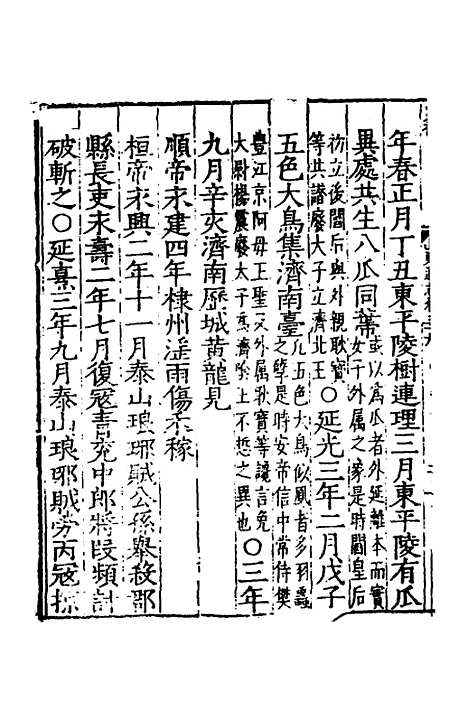 年春正月丁丑東平陵樹連理三月東平陵有瓜
異處共生八瓜同蔕或以為瓜者外延離本而實女子外属之象是時閻皇后
初立後閻后與外親耿寶等共譖廢大子立濟北王○延光三年二月戊子
五色大鳥集濟南臺凡五色大鳥似鳳者多羽蟲之孽是時安帝信中常侍樊
豐江京阿母王聖又外属耿寶等讒言免大尉楊震廢大子為濟陰上不悊之異也○三年
九月辛亥濟南歷城黄龍見
順帝永建四年棣州淫雨傷禾稼
桓帝永興二年十一月泰山琅邪賊公孫舉殺郡
縣長吏永壽二年七月復冦青兖中郎將叚頻討
破斬之○延熹三年九月泰山琅邪賊劳丙冦掠